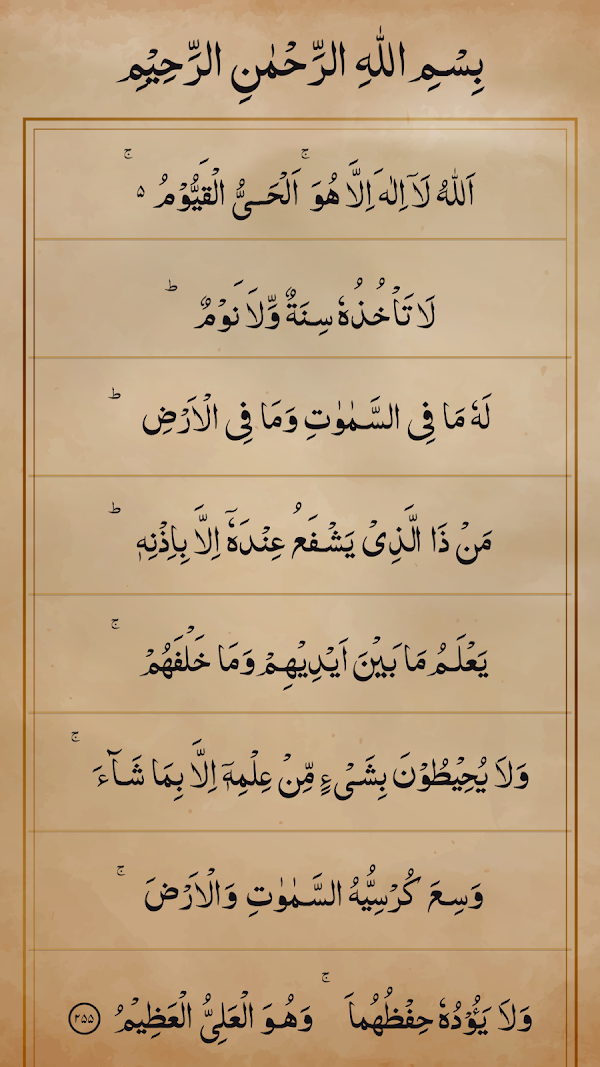 بِسْمِ اللّٰهِ الرَّحْمٰنِ الرَّحِيْمِ
اَللّٰهُ لَآ اِلٰهَ اِلَّا هُوَ ۚ اَلْحَـىُّ الْقَيُّوْمُ ۵ ۚ
لَا تَاْخُذُهٗ سِنَةٌ وَّلَا نَوْمٌ ؕ
لَهٗ مَا فِى السَّمٰوٰتِ وَمَا فِى الْاَرْضِ ؕ
مَنْ ذَا الَّذِىْ يَشْفَعُ عِنْدَهٗۤ اِلَّا بِاِذْنِهٖ ؕ
يَعْلَمُ مَا بَيْنَ اَيْدِيْهِمْ وَمَا خَلْفَهُمْ ۚ
وَلَا يُحِيْطُوْنَ بِشَىْءٍ مِّنْ عِلْمِهٖۤ اِلَّا بِمَا شَآءَ ۚ
وَسِعَ كُرْسِيُّهُ السَّمٰوٰتِ وَالْاَرْضَ ۚ
وَلَا يَؤُدُهٗ حِفْظُهُمَا ۚ وَهُوَ الْعَلِىُّ الْعَظِيْمُ ۲۵۵